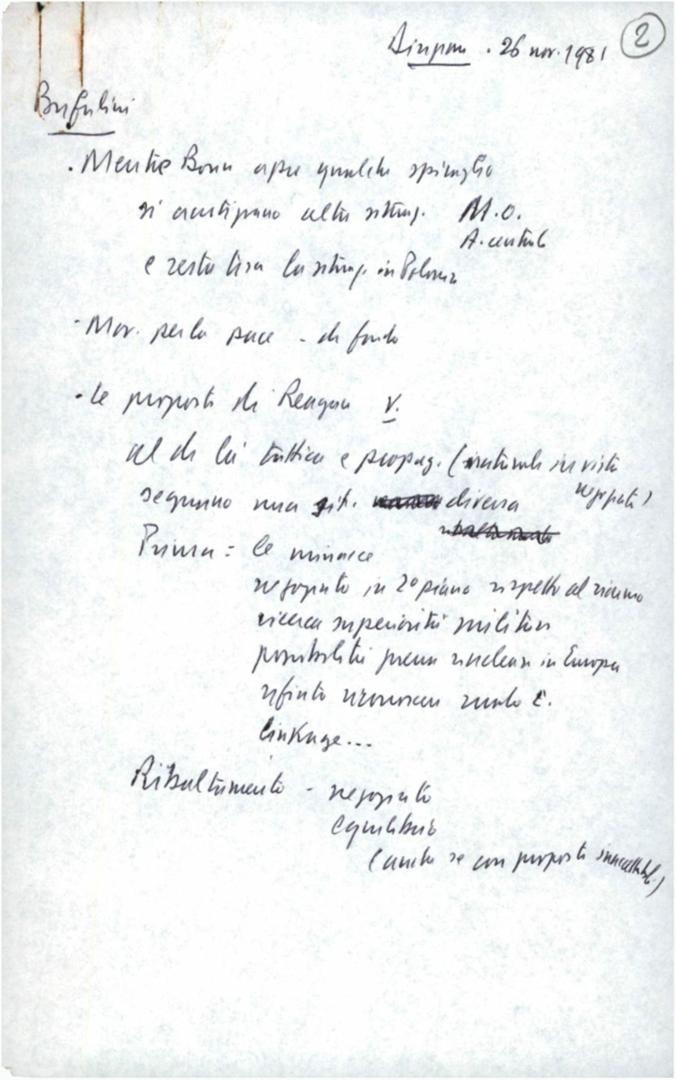 Direzione . 26 nov. 1981 2
Bufalini
. Mentre Bonn apre qualche spiraglio
si aperte altre situaz. M.O.
A. centrale
e resta tesa la situaz. in Polonia
- Mov. per la pace - di fondo
. Le proposte di Reagan V.
al di là tattica e propag. (naturale in vista
negoziati)
segnano una sit. diversa
Prima = le minacce
negoziato in 2º piano rispetto al riarmo
ricerca superiorità militare
possibilità guerra nucleare in Europa
rifiuto riconoscere ruolo E.
linkage...
Ribaltamento - negoziato
Equilibrio
(anche se con proposte inaccettab.)